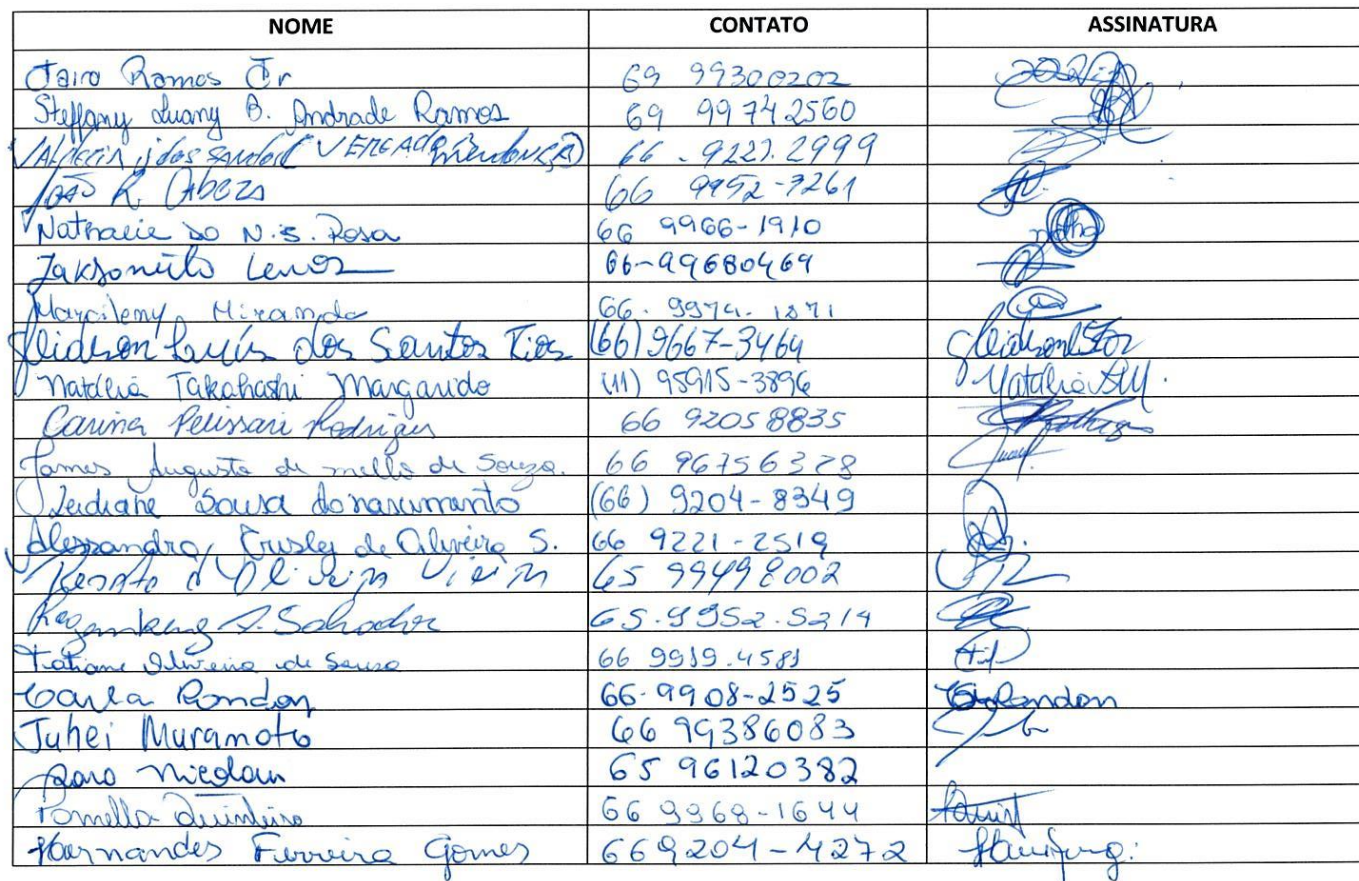 NOME CONTATO ASSINATURA
Jairo Ramos Jr 69 99300202
Steffany Luany B. Andrade Ramos 69 99742560
dos VEREADOR 66 . 9227.2999
João R. Cabeza 66 9952-7261
Nathalie do N.S. Rosa 66 9966-1910
66-99680469
Marcileny Miranda 66. 9974. 1871
Gleidson Luís dos Santos Rios (66) 9667-3464
Natália Takahashi Margarido (11) 95915-3896 Natália
Carina Pelissari Rodrigues 66 92058835
James Augusto de mello de Souza. 66 96756378
Leidiane Sousa do nascimento (66) 9204-8349
Alessandra Crusley de Oliveira S. 66 9221-2519
Renato d Oliveira Vieira 65 99498002
65.9952.5214
Tatiane Oliveira de Souza 66 9919.4581
Carla Rondon 66-9908-2525 Rondon
Juhei Muramoto 66 99386083
65 96120382
Pamella Quinteiro 66 9968-1644
Hernandes Ferreira Gomes 669204-4272